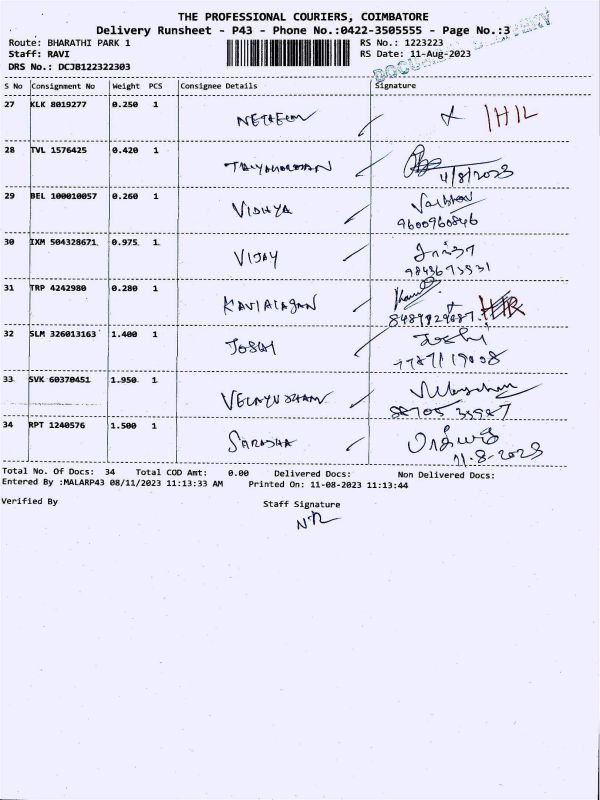 THE PROFESSIONAL COURIERS, COIMBATORE
Delivery Runsheet - P43 - Phone No.:0422-3505555 - Page No.:3
Route: BHARATHI PARK 1 RS No.: 1223223
Staff: RAVI RS Date: 11-Aug-2023
DRS No.: DCJB122322303
S No Consignment No Weight PCS Consignee Details Signature
27 KLK 8019277 0.250 1
28 TVL 1576425 0.420 1
4/8/2023
29 BEL 100010057 0.260 1 VIDHYA Vaibhav
9600960846
30 IXM 504328671 0.975 1 VIJAY
31 TRP 4242980 0.280 1 KAVIALAGAN
32 SLM 326013163 1.400 1 JOSHI Joshi
33 SVK 60370451 1.950 1 VELAYUDHAM
34 RPT 1240576 1.500 1 SARADHA
11.8-2023
Total No. Of Docs: 34 Total COD Amt: 0.00 Delivered Docs: Non Delivered Docs:
Entered By :MALARP43 08/11/2023 11:13:33 AM Printed On: 11-08-2023 11:13:44
Verified By Staff Signature